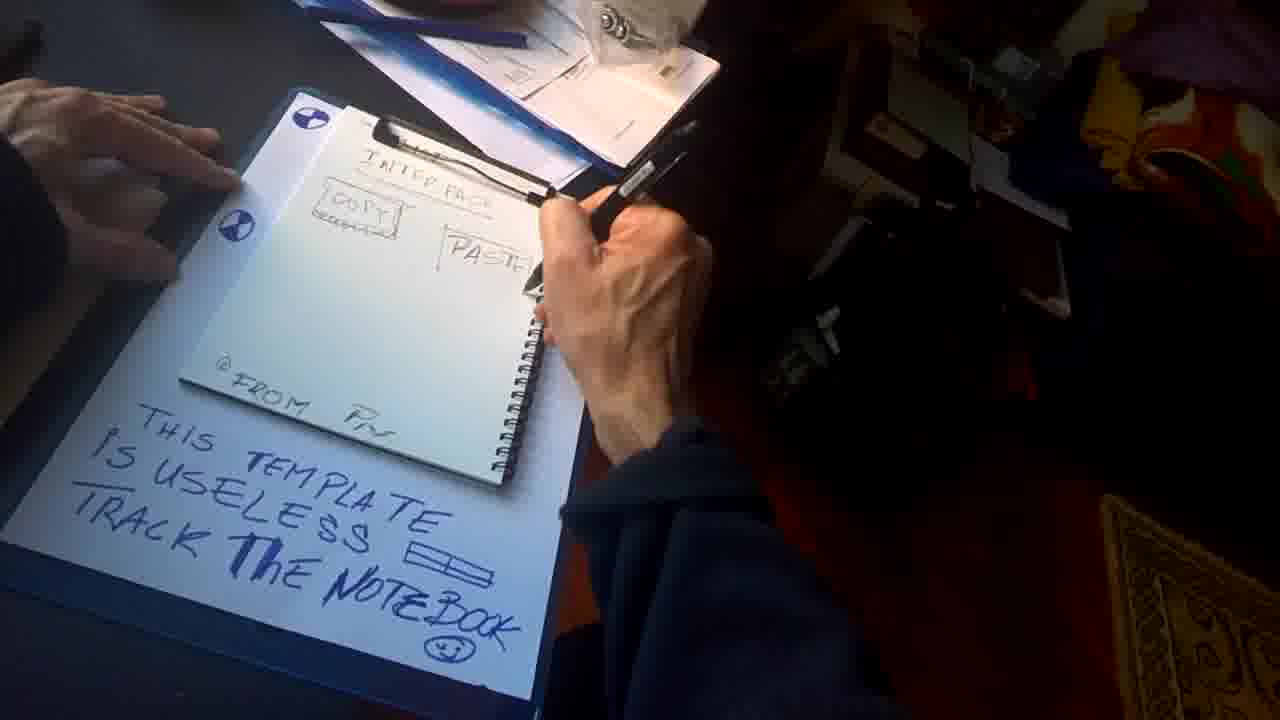 INTERFACE
COPY
PASTE
@ FROM
THIS TEMPLATE
IS USELESS
TRACK THE NOTEBOOK